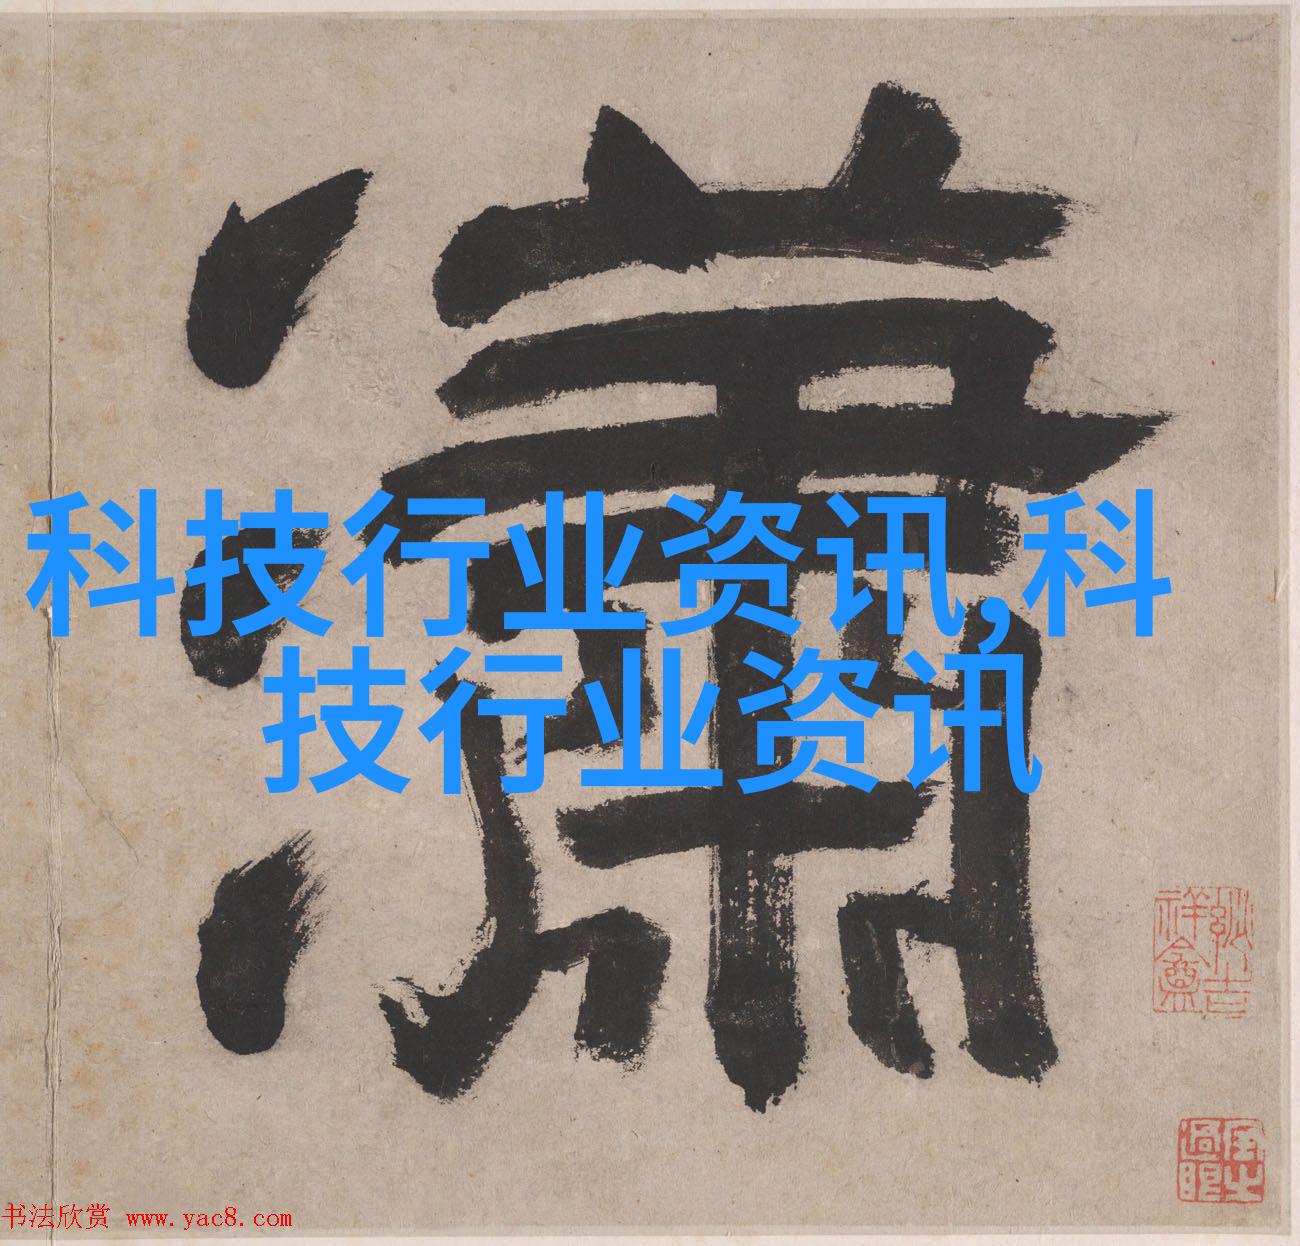 瀟
科技行业资讯,科
技行业资讯
书法欣赏 www.yac8.com